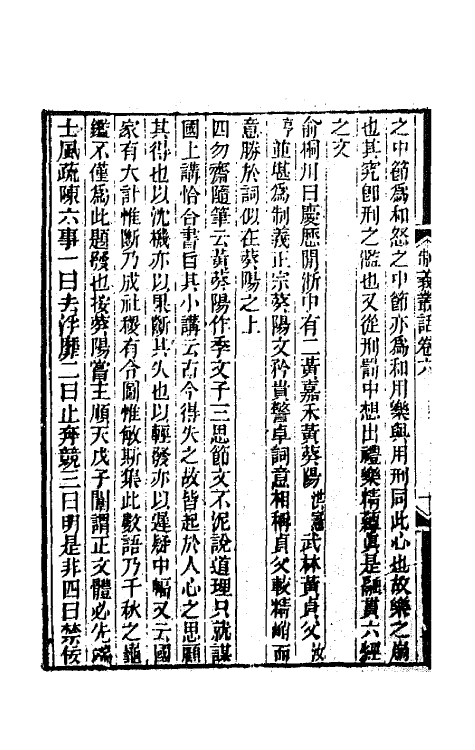 制義叢話卷六
之中節為和怒之中節亦為和用樂與用刑同此心也故樂之崩
也其究卽刑之濫也又從刑罰中想出禮樂精蘊眞是融貫六經
之文
俞桐川曰慶歷閒浙中有二黃嘉禾黃葵陽洪憲武林黃貞父汝
亨並堪為制義正宗葵陽文矜貴警卓詞意相稱貞父較精峭而
意勝於詞似在葵陽之上
四勿齋隨筆云黃葵陽作季文子三思節文不泥說道理只就謀
國上講恰合書旨其小講云古今得失之故皆起於人心之思顧
其得也以沈機亦以果斷其失也以輕發亦以遲疑中幅又云國
家有大計惟斷乃成社稷有令圖惟敏斯集此數語乃千秋之龜
鑑不僅為此題發也按葵陽嘗主順天戊子闈謂正文體必先端
士風疏陳六事一曰去浮靡二曰止奔競三曰明是非四曰禁佞